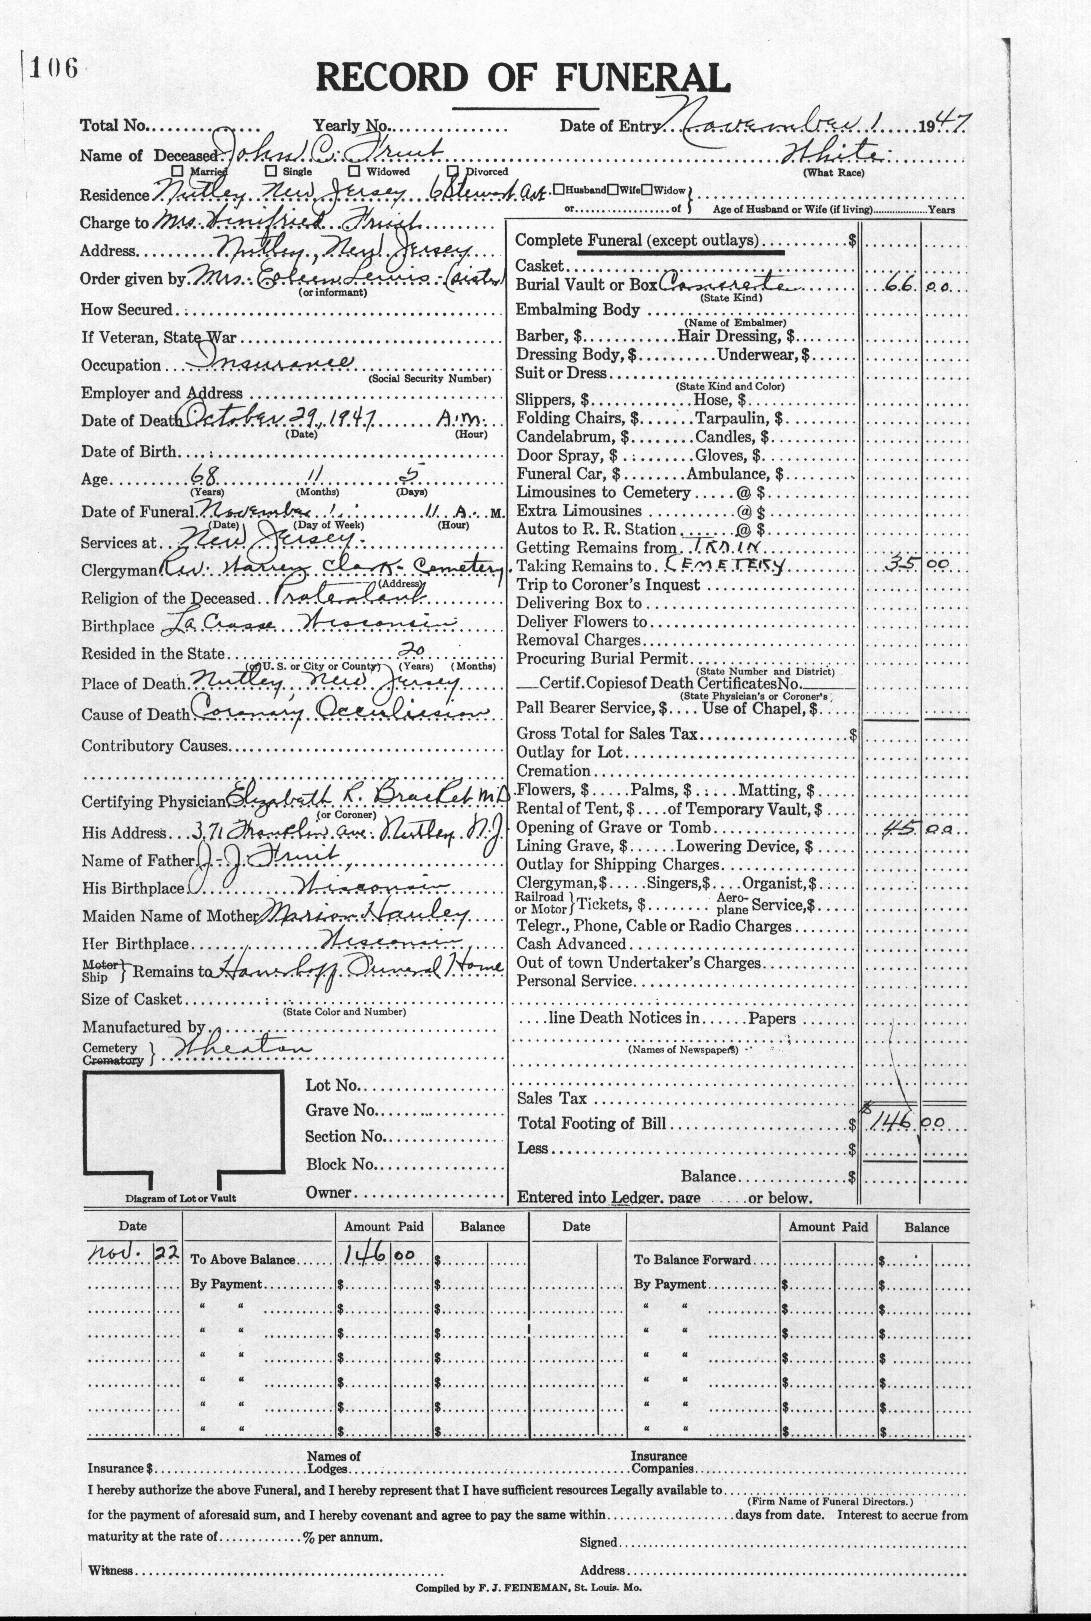 106
RECORD OF FUNERAL
Total No. Yearly No. Date of Entry November 1 1947
Name of Deceased John C. Fruit White
☐ Married ☐ Single ☐ Widowed ☐ Divorced (What Race)
Residence Nutley, New Jersey 68 Stewart Ave. ☐ Husband ☐ Wife ☐ Widow }
or of } Age of Husband or Wife (if living) Years
Charge to Mrs. Winifried Fruit
Address Nutley, New Jersey
Order given by Mrs. Lewis (sister)
(or informant)
How Secured
If Veteran, State War
Occupation Insurance
(Social Security Number)
Employer and Address
Date of Death October 29, 1947 A.M.
(Date) (Hour)
Date of Birth
Age 68 11 5
(Years) (Months) (Days)
Date of Funeral November 1 11 A. M.
(Date) (Day of Week) (Hour)
Services at New Jersey
Clergyman Rev. Warren Clark - Cemetery
(Address)
Religion of the Deceased Protestant
Birthplace La Crosse Wisconsin
Resided in the State 20
(or U. S. or City or County) (Years) (Months)
Place of Death Nutley, New Jersey
Cause of Death Coronary Occulission
Contributory Causes
Certifying Physician Elizabeth R. Bracket M.D.
(or Coroner)
His Address 371 Franklin Ave. Nutley N.J.
Name of Father J. J. Fruit
His Birthplace Wisconsin
Maiden Name of Mother Marion Hanley
Her Birthplace Wisconsin
Motor
Ship } Remains to Funeral Home
Size of Casket
(State Color and Number)
Manufactured by
Cemetery
Crematory } Wheaton
Lot No.
Grave No.
Section No.
Block No.
Owner
Diagram of Lot or Vault
Complete Funeral (except outlays) $
Casket
Burial Vault or Box Concrete 66 00
(State Kind)
Embalming Body
(Name of Embalmer)
Barber, $ Hair Dressing, $
Dressing Body, $ Underwear, $
Suit or Dress
(State Kind and Color)
Slippers, $ Hose, $
Folding Chairs, $ Tarpaulin, $
Candelabrum, $ Candles, $
Door Spray, $ Gloves, $
Funeral Car, $ Ambulance, $
Limousines to Cemetery @ $
Extra Limousines @ $
Autos to R. R. Station @ $
Getting Remains from TRAIN
Taking Remains to CEMETERY 35 00
Trip to Coroner's Inquest
Delivering Box to
Deliver Flowers to
Removal Charges
Procuring Burial Permit
(State Number and District)
Certif. Copies of Death Certificates No.
(State Physician's or Coroner's
Pall Bearer Service, $ Use of Chapel, $
Gross Total for Sales Tax $
Outlay for Lot
Cremation
Flowers, $ Palms, $ Matting, $
Rental of Tent, $ of Temporary Vault, $
Opening of Grave or Tomb 45 00
Lining Grave, $ Lowering Device, $
Outlay for Shipping Charges
Clergyman, $ Singers, $ Organist, $
Railroad
or Motor } Tickets, $ Aero-
plane Service, $
Telegr., Phone, Cable or Radio Charges
Cash Advanced
Out of town Undertaker's Charges
Personal Service
line Death Notices in Papers
(Names of Newspapers)
Sales Tax
$
Total Footing of Bill $ 146 00
Less $
Balance $
Entered into Ledger, page or below.
Date Amount Paid Balance Date Amount Paid Balance
Nov. 22 To Above Balance 146 00 $ To Balance Forward $
By Payment $ $ By Payment $ $
" " $ $ " " $ $
" " $ $ " " $ $
" " $ $ " " $ $
" " $ $ " " $ $
" " $ $ " " $ $
" " $ $ " " $ $
Insurance $ Names of
Lodges Insurance
Companies
I hereby authorize the above Funeral, and I hereby represent that I have sufficient resources Legally available to
(Firm Name of Funeral Directors.)
for the payment of aforesaid sum, and I hereby covenant and agree to pay the same within days from date. Interest to accrue from
maturity at the rate of % per annum.
Signed
Witness Address
Compiled by F. J. FEINEMAN, St. Louis. Mo.